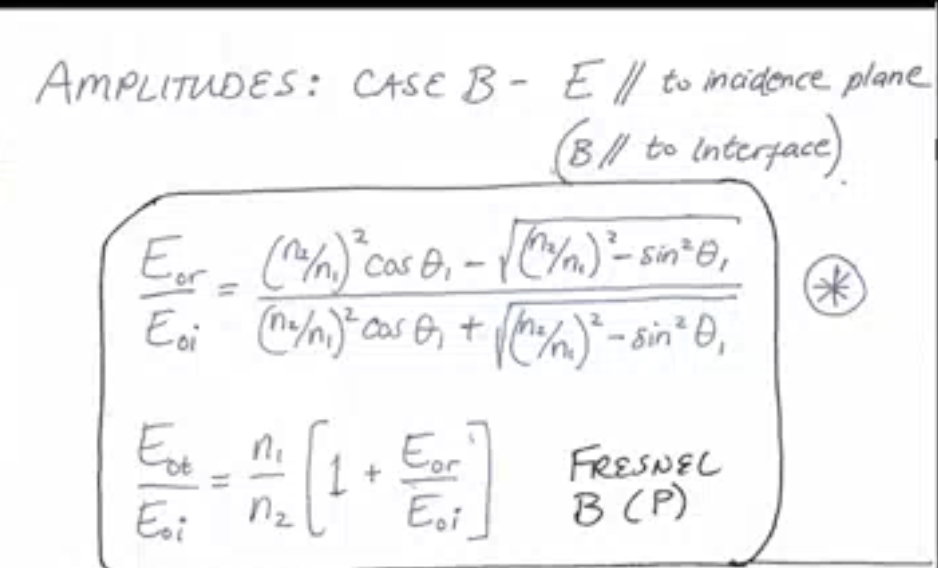 AMPLITUDES: CASE B - E // to incidence plane
(B // to interface).
E₀r/E₀i = ((n₂/n₁)² cos θ₁ - √((n₂/n₁)² - sin² θ₁)) / ((n₂/n₁)² cos θ₁ + √((n₂/n₁)² - sin² θ₁)) ⊛
E₀t/E₀i = n₁/n₂ [1 + E₀r/E₀i] FRESNEL
B (P)